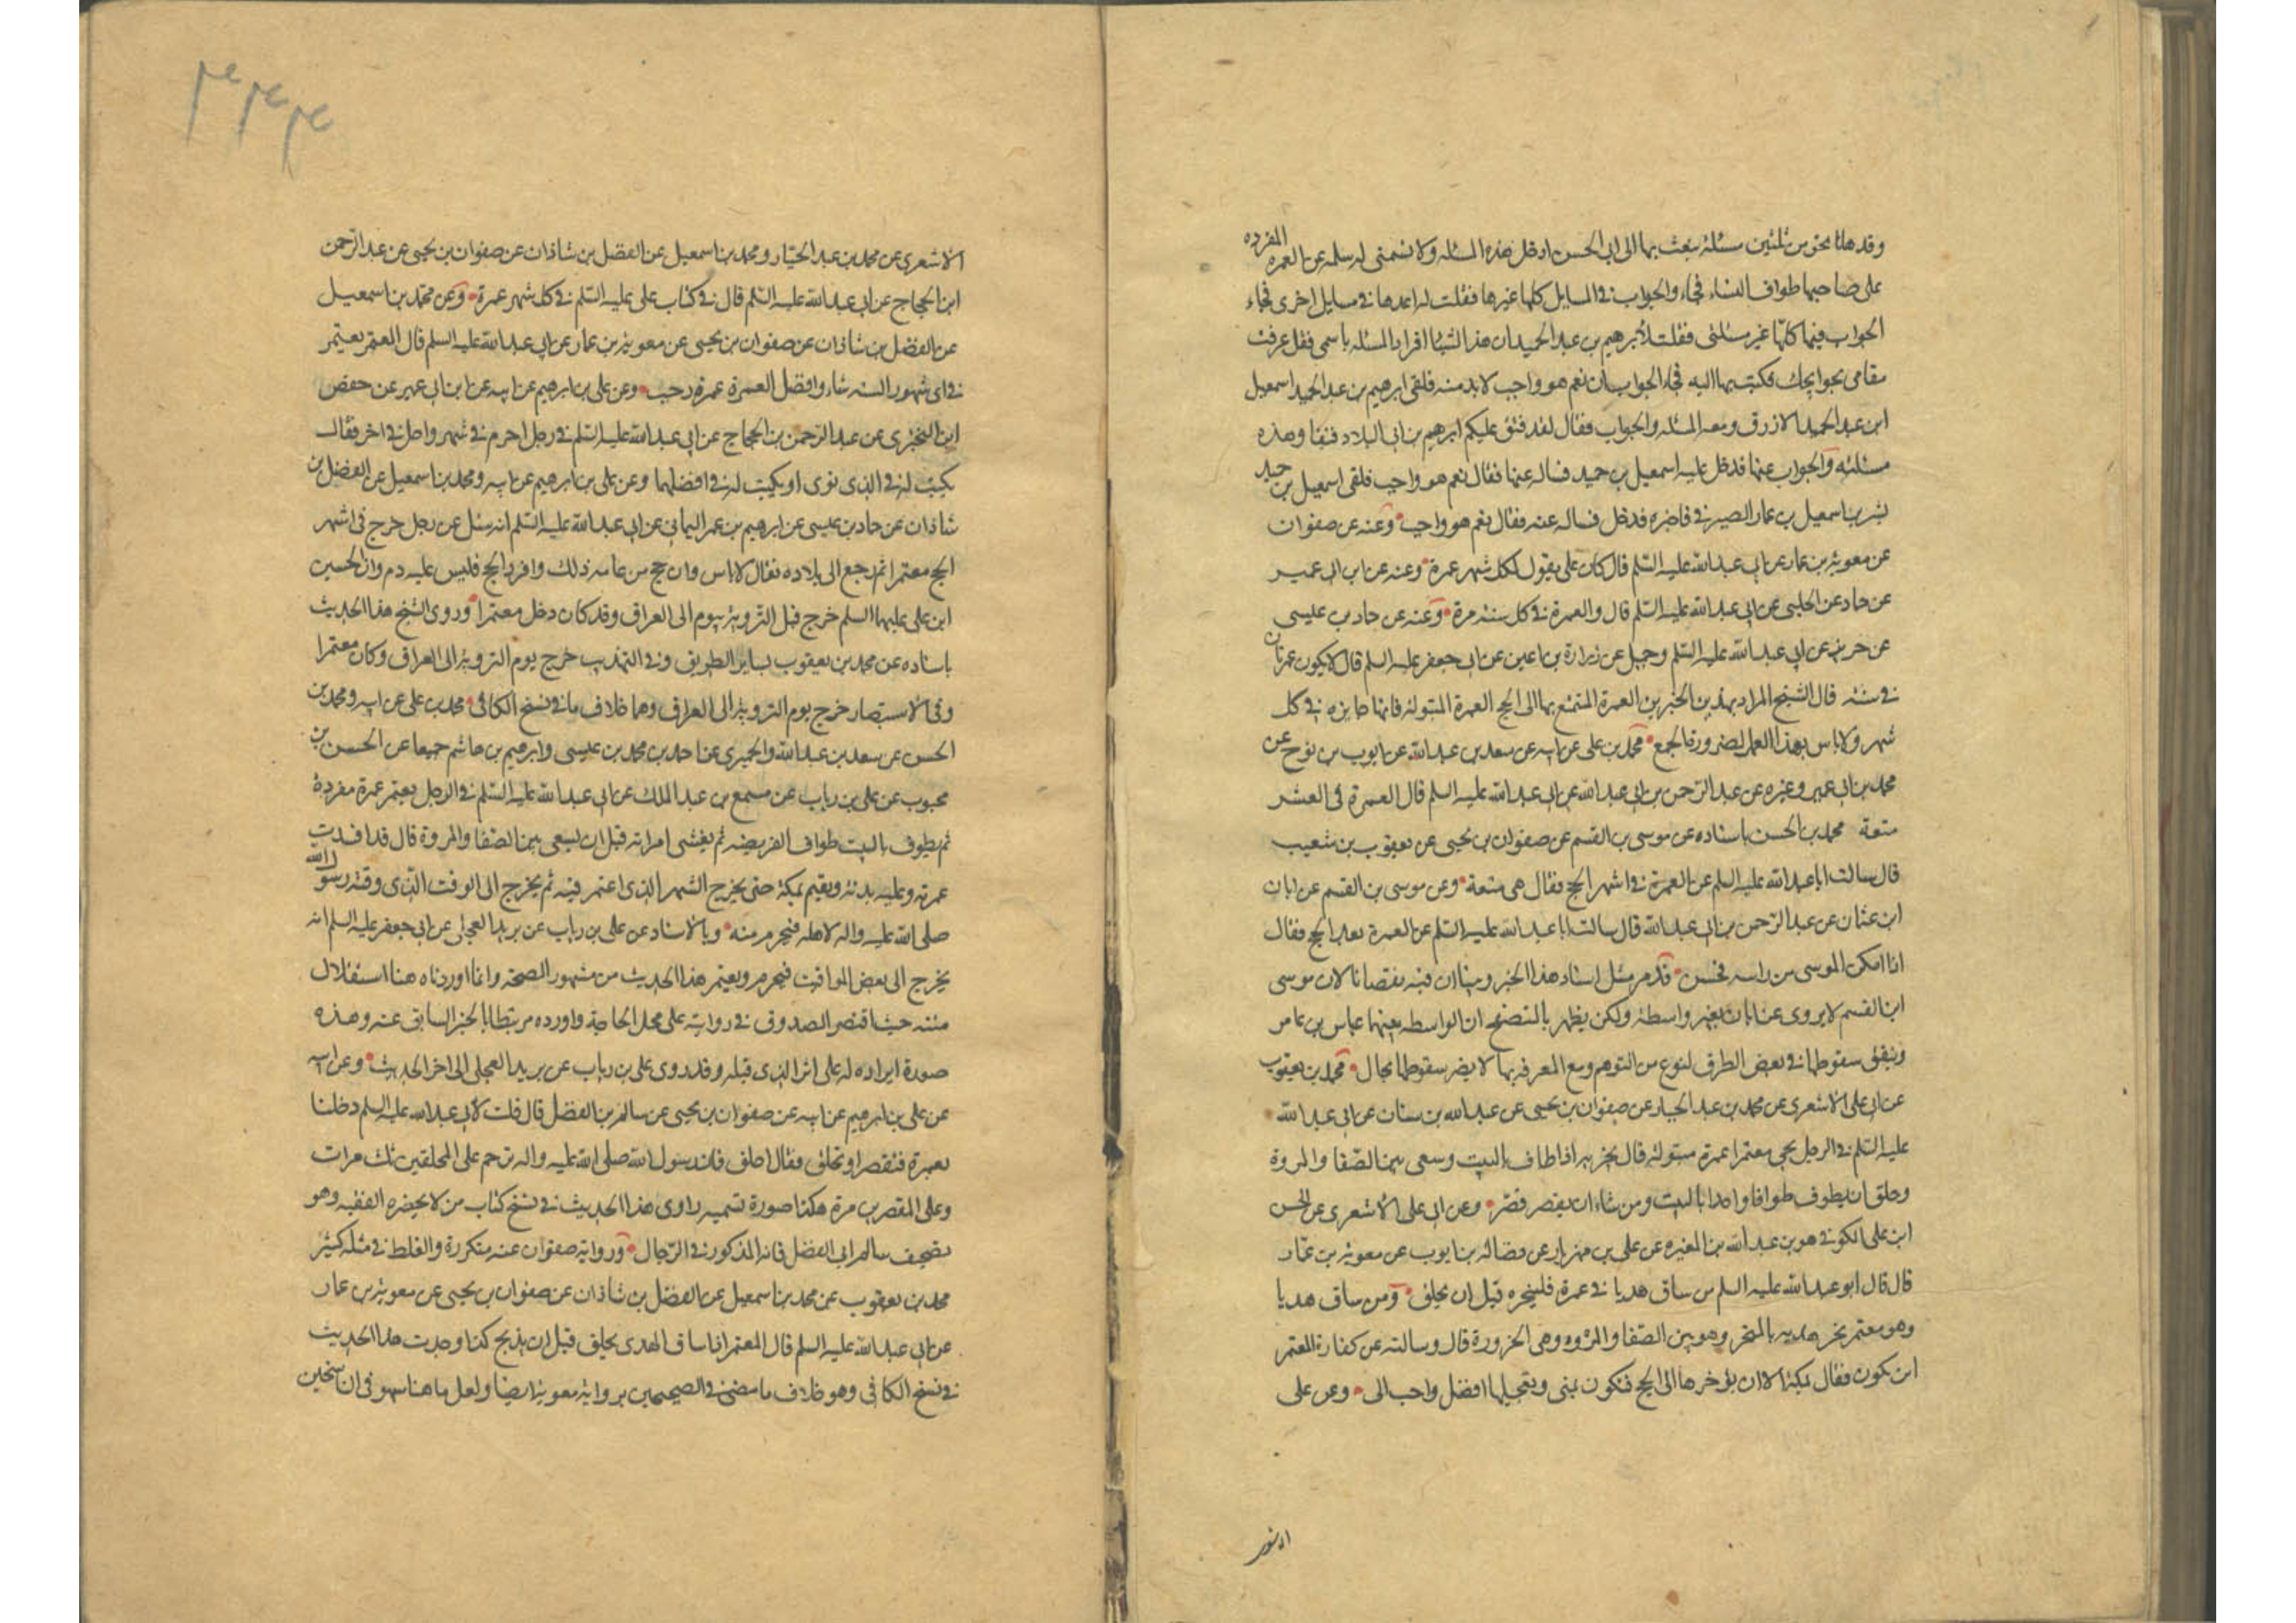 وقد هانا نحو من ثلثين مسئلة نبعث بها الى ابى الحسن ادخل هذه المسئله ولا تسمنى له سله عن العمره المفرده
على صاحبها طواف النساء فجاء والجواب فى المسايل كلها غيرها فقلت له اعدها فى مسايل اخرى فجاء
الجواب فيها كلها غير مسئلتى فقلت لابرهيم بن عبد الحميد ان هذا لشيئا افرد المسئله باسمى فقد عرفت
مقامى بحوايجك فكتب بها اليه فجاء الجواب ان نعم هو واجب لا بد منه فلقى ابرهيم بن عبد الحميد اسمعيل
ابن عبد الحميد الازرق ومعه المسئله والجواب فقال لقد فتق عليكم ابرهيم بن ابى البلاد فتقا وهذه
مسئلته والجواب عنها فدخل عليه اسمعيل بن حميد فساله عنها فقال نعم هو واجب فلقى اسمعيل بن حميد
بشر بن اسمعيل بن عمار الصيرفى فاخبره فدخل فساله عنه فقال نعم هو واجب وعنه عن صفوان
عن معوية بن عمار عن ابى عبد الله عليه السلم قال كان على يقول لكل شهر عمرة وعنه عن ابن ابى عمير
عن حماد عن الحلبى عن ابى عبد الله عليه السلم قال والعمرة فى كل سنة مرة وعنه عن حماد بن عيسى
عن حريز عن ابى عبد الله عليه السلم وجميل عن زرارة بن اعين عن ابى جعفر عليه السلم قال لا يكون عمرتان
فى سنة قال الشيخ المراد بهذين الخبرين العمرة المتمتع بها الى الحج العمرة المبتولة فانها جايزه فى كل
شهر ولا باس بهذا العمل لضرورة الجمع محمد بن على عن ابيه عن سعد بن عبد الله عن ايوب بن نوح عن
محمد بن ابى عمير وغيره عن عبد الرحمن بن ابى عبد الله عن ابى عبد الله عليه السلم قال العمرة فى العشر
متعة محمد بن الحسن باسناده عن موسى بن القسم عن صفوان بن يحيى عن يعقوب بن شعيب
قال سالت ابا عبد الله عليه السلم عن العمرة فى اشهر الحج فقال هى متعة وعن موسى بن القسم عن ابان
ابن عثمان عن عبد الرحمن بن ابى عبد الله قال سالت ابا عبد الله عليه السلم عن العمرة بعد الحج فقال
اذا امكن الموسى من راسه فحسن قد مر مثل اسناد هذا الخبر وبينا ان فيه نقصانا لان موسى
ابن القسم لا يروى عن ابان بغير واسطة ولكن يظهر بالتصفح ان الواسطه بينهما عباس بن عامر
ويتفق سقوطها فى بعض الطرق لنوع من التوهم ومع المعرفة بها لا يضر سقوطها بحال محمد بن يعقوب
عن ابى على الاشعرى عن محمد بن عبد الجبار عن صفوان بن يحيى عن عبد الله بن سنان عن ابى عبد الله
عليه السلم فى الرجل يجى معتمرا عمرة مبتولة قال يجزيه اذا طاف بالبيت وسعى بين الصفا والمروة
وحلق ان يطوف طوافا واحدا بالبيت ومن شاء ان يقصر قصر وعن ابى على الاشعرى عن الحسن
ابن على الكوفى هو بن عبد الله بن المغيرة عن على بن مهزيار عن فضالة بن ايوب عن معوية بن عمار
قال قال ابو عبد الله عليه السلم من ساق هديا فى عمرة فلينحره قبل ان يحلق ومن ساق هديا
وهو معتمر نحر هديه بالمنحر وهو بين الصفا والمروه وهى الحزورة قال وسالته عن كفارة المعتمر
اين تكون فقال بمكة الا ان يؤخرها الى الحج فتكون بمنى وتعجيلها افضل واحب الى وعن على
الاشعرى عن محمد بن عبد الجبار ومحمد بن اسمعيل عن الفضل بن شاذان عن صفوان بن يحيى عن عبد الرحمن
ابن الحجاج عن ابى عبد الله عليه السلم قال فى كتاب على عليه السلم فى كل شهر عمرة وعن محمد بن اسمعيل
عن الفضل بن شاذان عن صفوان بن يحيى عن معوية بن عمار عن ابى عبد الله عليه السلم قال المعتمر يعتمر
فى اى شهور السنه شاء وافضل العمرة عمرة رجب وعن على بن ابرهيم عن ابيه عن ابن ابى عمير عن حفص
ابن البخترى عن عبد الرحمن بن الحجاج عن ابى عبد الله عليه السلم فى رجل احرم فى شهر واحل فى اخر فقال
يكتب له فى الذى نوى او يكتب له فى افضلهما وعن على بن ابرهيم عن ابيه ومحمد بن اسمعيل عن الفضل بن
شاذان عن حماد بن عيسى عن ابرهيم بن عمر اليمانى عن ابى عبد الله عليه السلم انه سئل عن رجل خرج فى اشهر
الحج معتمرا ثم رجع الى بلاده فقال لا باس وان حج من عامه ذلك وافرد الحج فليس عليه دم وان الحسين
ابن على عليهما السلم خرج قبل التروية بيوم الى العراق وقد كان دخل معتمرا وروى الشيخ هذا الحديث
باسناده عن محمد بن يعقوب بساير الطريق وفى التهذيب خرج يوم التروية الى العراق وكان معتمرا
وفى الاستبصار خرج يوم التروية الى العراق وهما خلاف ما فى نسخ الكافى محمد بن على عن ابيه ومحمد بن
الحسن عن سعد بن عبد الله والحميرى عن احمد بن محمد بن عيسى وابرهيم بن هاشم جميعا عن الحسن بن
محبوب عن على بن رياب عن مسمع بن عبد الملك عن ابى عبد الله عليه السلم فى الرجل يعتمر عمرة مفردة
ثم يطوف بالبيت طواف الفريضه ثم يغشى امراته قبل ان يسعى بين الصفا والمروة قال قد افسدت
عمرته وعليه بدنة ويقيم بمكة حتى يخرج الشهر الذى اعتمر فيه ثم يخرج الى الوقت الذى وقته رسول الله
صلى الله عليه واله لاهله فيحرم منه وبالاسناد عن على بن رياب عن بريد العجلى عن ابى جعفر عليه السلم انه
يخرج الى بعض المواقيت فيحرم ويعتمر هذا الحديث من مشهور الصحة وانما اوردناه هنا استقلال
متنه حيث اقتصر الصدوق فى روايته على محل الحاجة واورده مرتبطا بالخبر السابق عنه وهذه
صورة ايراده له على اثر الذى قبله وقد روى على بن رياب عن بريد العجلى الى اخر الحديث وعن ابيه
عن على بن ابرهيم عن ابيه عن صفوان بن يحيى عن سالم بن الفضل قال قلت لابى عبد الله عليه السلم دخلنا
بعمرة فنقصر او نحلق فقال احلق فان رسول الله صلى الله عليه واله ترحم على المحلقين ثلث مرات
وعلى المقصرين مرة هكذا صورة تسميه راوى هذا الحديث فى نسخ كتاب من لا يحضره الفقيه وهو
تصحيف سالم ابى الفضل فانه المذكور فى الرجال ورواية صفوان عنه متكررة والغلط فى مثله كثير
محمد بن يعقوب عن محمد بن اسمعيل عن الفضل بن شاذان عن صفوان بن يحيى عن معوية بن عمار
عن ابى عبد الله عليه السلم قال المعتمر اذا ساق الهدى يحلق قبل ان يذبح كذا وجدت هذا الحديث
فى نسخ الكافى وهو خلاف ما مضى فى الصحيحين برواية معوية ايضا ولعل ما هنا سهو فى ان